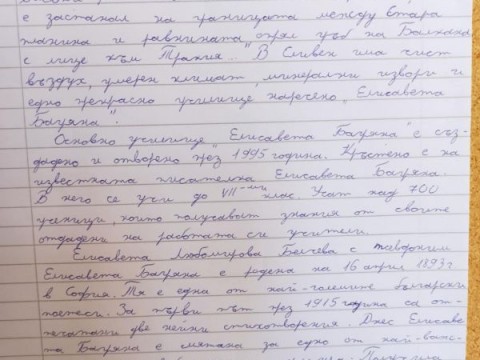 е застанал на границата между Стара
планина и равнината опрял гръб на Балкана
с лице към Тракия. "В Сливен има чист
въздух, умерен климат, минерални извори и
едно прекрасно училище наречено "Елисавета
Багряна".
Основно училище "Елисавета Багряна" е съз-
дадено и отворено през 1995 година. Кръстено е на
известната писателка Елисавета Багряна.
В него се учи до VII-ми клас. Учат над 700
ученици, които получават знания от своите
отдадени на работата си учители.
Елисавета Любомирова Белчева с псевдоним
Елисавета Багряна е родена на 16 април 1893г
в София. Тя е една от най-големите български
поетеси. За първи път през 1915 година са от-
печатани две нейни стихотворения. Днес Елисаве-
та Багряна е смятана за една от най-